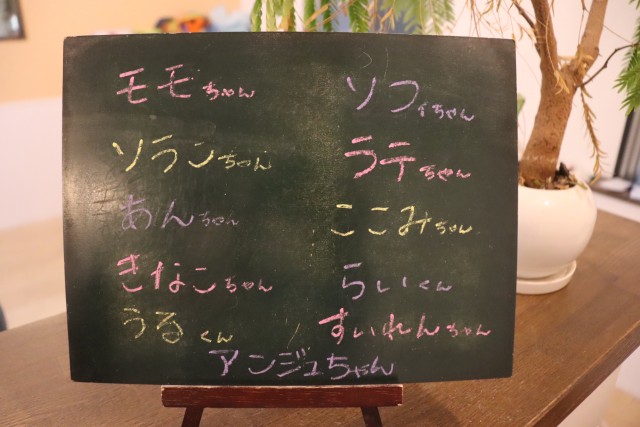 モモちゃん
ソランちゃん
あんちゃん
きなこちゃん
うるくん
ソフィちゃん
ラテちゃん
ここみちゃん
らいくん
すいれんちゃん
アンジュちゃん